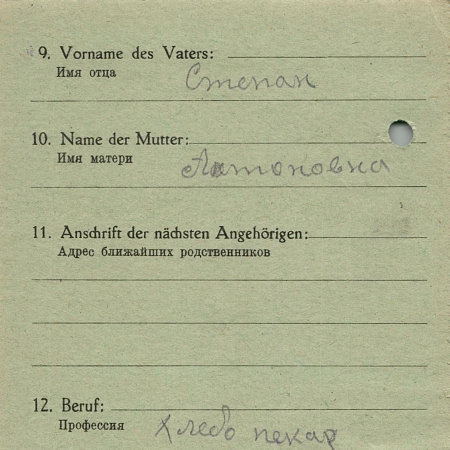 9. Vorname des Vaters:
Имя отца
Степан
10. Name der Mutter:
Имя матери
Антоновна
11. Anschrift der nächsten Angehörigen:
Адрес ближайших родственников
12. Beruf:
Профессия
хлебо пекар